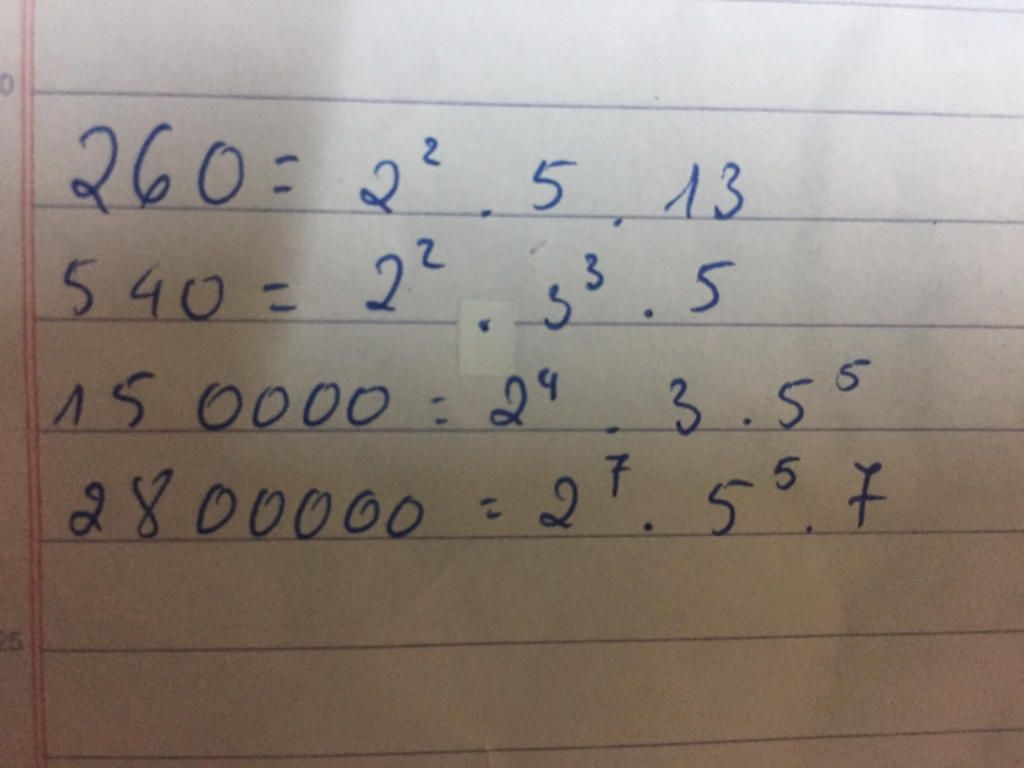 260 = 2² . 5 . 13
540 = 2² . 3³ . 5
150000 = 2⁴ . 3 . 5⁵
2800000 = 2⁷ . 5⁵ . 7
25